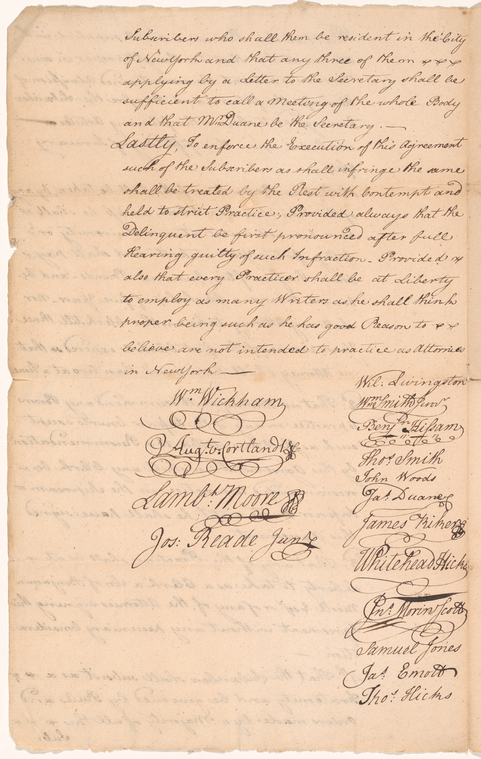 Subscribers who shall them be resident in the City
of New York and that any three of them x x x
applying by a Letter to the Secretary shall be
sufficient to call a Meeting of the whole Body
and that Mr. Duane be the Secretary. —
Lastly, To enforce the Execution of this Agreement
such of the Subscribers as shall infringe the same
shall be treated by the Rest with Contempt and
held to strict Practice; Provided always that the
Delinquent be first pronounced after full
Hearing guilty of such Infraction. Provided x
also that every Practicer shall be at Liberty
to employ as many Writers as he shall think
proper being such as he has good Reason to x x
believe are not intended to practice as Attornies
in New York —
Wm Wickham
Augt. v. Cortlandt
Lambt. Moore
Jos: Reade Junr
Wil. Livingston
Wm Smith Junr
Benjn
Thos. Smith
John Woods
Jas. Duane
James
Whitehead Hicks
Jno. Morin Scott
Samuel Jones
Jas. Emott
Thos. Hicks